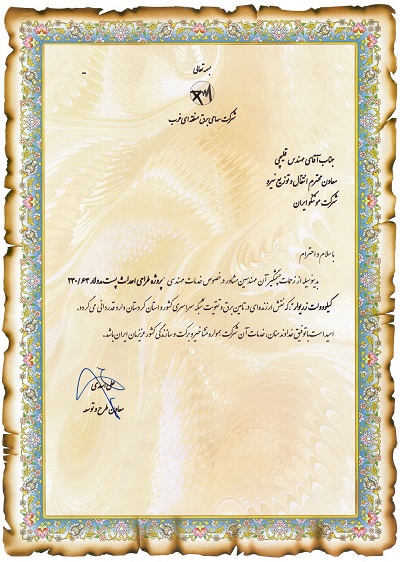 بسمه تعالی
شرکت سهامی برق منطقه ای غرب
جناب آقای مهندس قلیچی
معاون محترم انتقال و توزیع نیرو
شرکت موننکو ایران
با سلام و احترام
بدینوسیله از زحمات چشمگیر آن مهندسین مشاور در خصوص خدمات مهندسی "پروژه طراحی احداث پست مدولار ۲۳۰/۶۳
کیلوولت زریوار" که نقش ارزنده ای در تامین برق و تقویت شبکه سراسری کشور و استان کردستان دارد قدردانی می گردد.
امید است با توفیق خداوند منان، خدمات آن شرکت همواره منشا خیر و برکت و سازندگی کشور عزیزمان ایران باشد.
علی اسدی
معاون طرح و توسعه